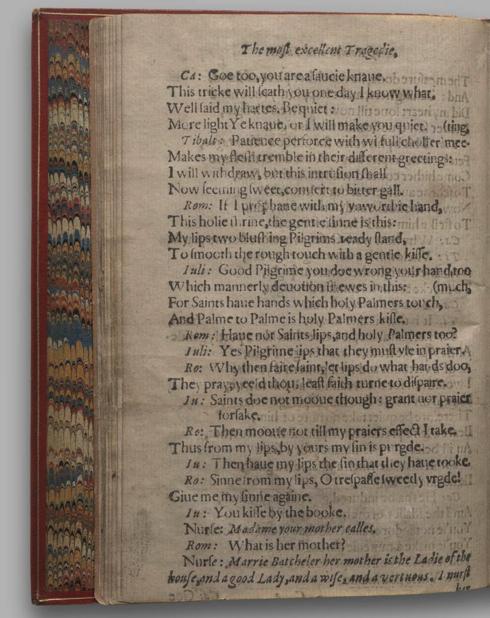 The most excellent Tragedie,
Ca: Goe too, you are a saucie knaue.
This tricke will scath you one day I know what.
Well said my hartes. Be quiet:
More light Ye knaue, or I will make you quiet. (ting,
Tibalt: Patience perforce with wilfull choller mee-
Makes my flesh tremble in their different greetings:
I will withdraw, but this intrusion shall
Now seeming sweet, conuert to bitter gall.
Rom: If I prophane with my vnworthie hand,
This holie shrine, the gentle sinne is this:
My lips two blushing Pilgrims ready stand,
To smooth the rough touch with a gentle kisse.
Iuli: Good Pilgrime you doe wrong your hand too
Which mannerly deuotion shewes in this: (much,
For Saints haue hands which holy Palmers touch,
And Palme to Palme is holy Palmers kisse.
Rom: Haue not Saints lips, and holy Palmers too?
Iuli: Yes Pilgrime lips that they must vse in praier.
Ro: Why then faire saint, let lips do what hands doo,
They pray, yeeld thou, least faith turne to dispaire.
Iu: Saints doe not mooue though: grant nor praier
forsake.
Ro: Then mooue not till my praiers effect I take.
Thus from my lips, by yours my sin is purgde.
Iu: Then haue my lips the sin that they haue tooke.
Ro: Sinne from my lips, O trespasse sweetly vrgde!
Giue me my sinne againe.
Iu: You kisse by the booke.
Nurse: Madame your mother calles.
Rom: What is her mother?
Nurse: Marrie Batcheler her mother is the Ladie of the
house, and a good Lady, and a wise, and a vertuous. I nurst
her